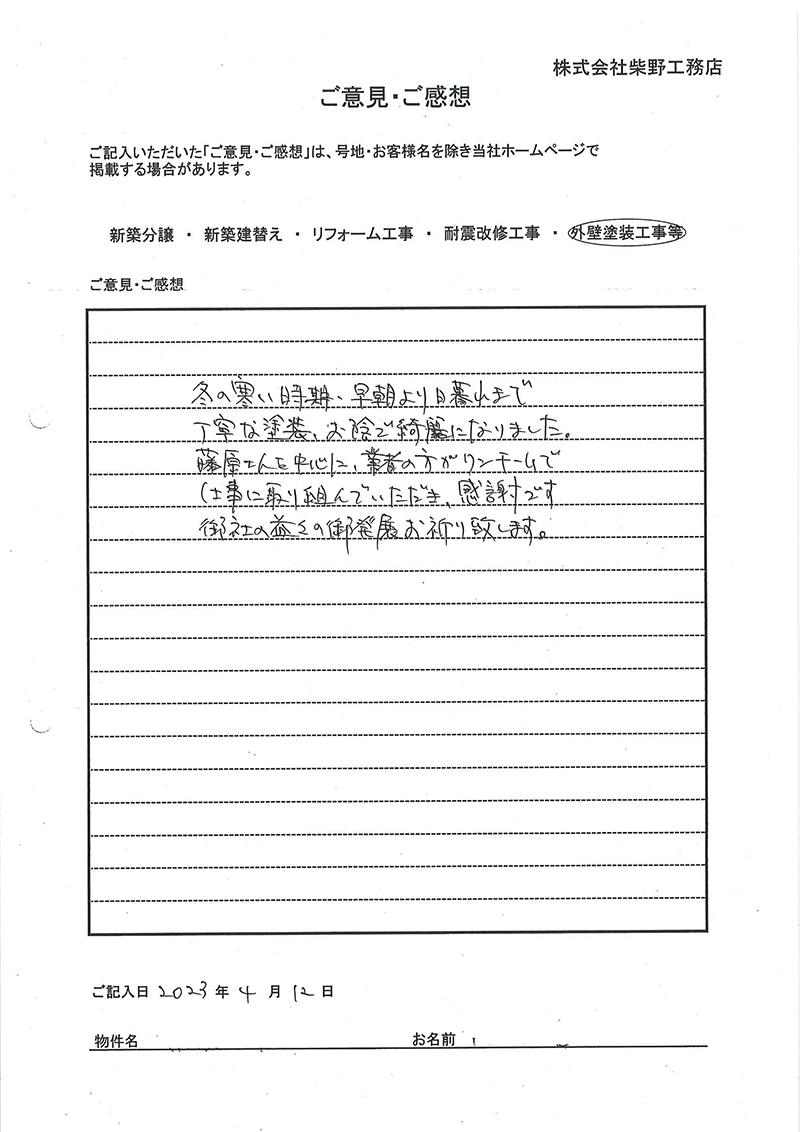 株式会社柴野工務店
ご意見・ご感想
ご記入いただいた「ご意見・ご感想」は、号地・お客様名を除き当社ホームページで
掲載する場合があります。
新築分譲 ・ 新築建替え ・ リフォーム工事 ・ 耐震改修工事 ・ 外壁塗装工事等
ご意見・ご感想
冬の寒い時期、早朝より日暮れまで
丁寧な塗装、お陰で綺麗になりました。
藤原さんを中心に、業者の方がワンチームで
仕事に取り組んでいただき、感謝です
御社の益々の御発展お祈り致します。
ご記入日 2023 年 4 月 12 日
物件名 お名前